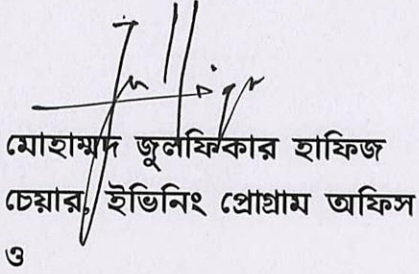 মোহাম্মদ জুলফিকার হাফিজ
চেয়ার, ইভিনিং প্রোগ্রাম অফিস
ও